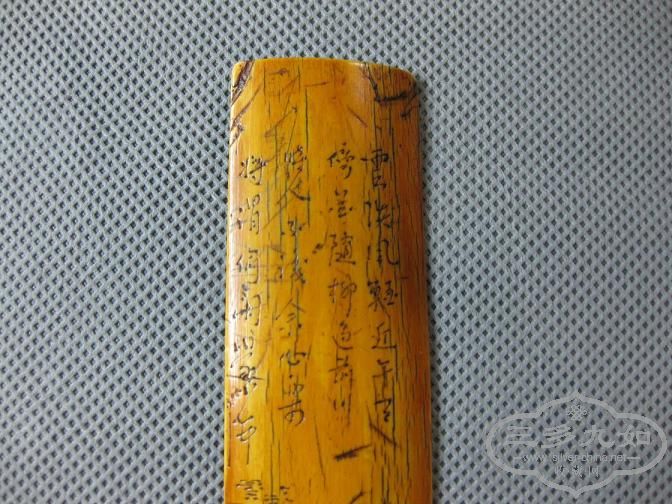 雲淡風輕近午天
傍花隨柳過前川
時人不識余心樂
將謂偷閒學少年
三多九如
www.silver-china.net